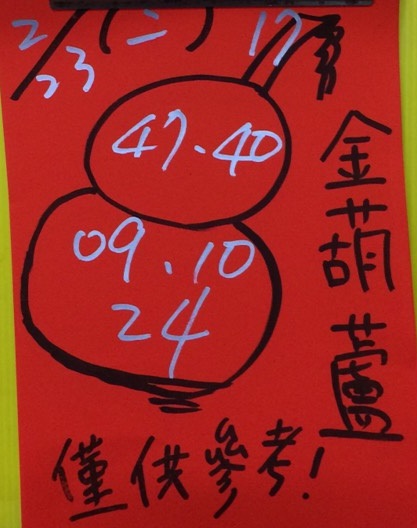 2/23 (二) 17
47.40
09.10
24
金葫蘆
僅供參考!